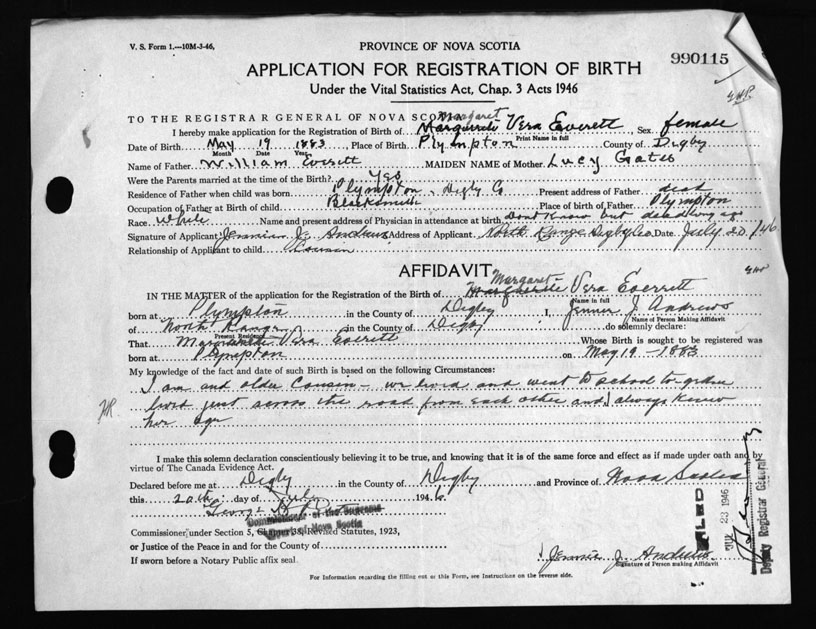 V. S. Form 1.—10M-3-46,
PROVINCE OF NOVA SCOTIA
990115
APPLICATION FOR REGISTRATION OF BIRTH
Under the Vital Statistics Act, Chap. 3 Acts 1946
TO THE REGISTRAR GENERAL OF NOVA SCOTIA
Margaret
I hereby make application for the Registration of Birth of Marguerite Vera Everett, Sex female
Print Name in full
Date of Birth May 19 1883, Place of Birth Plympton County of Digby
Month Date Year
Name of Father William Everett MAIDEN NAME of Mother Lucy Gates
Were the Parents married at the time of Birth? Yes
Residence of Father when child was born Plympton, Digby Co Present address of Father dead
Occupation of Father at Birth of child Blacksmith Place of birth of Father Plympton
Race White Name and present address of Physician in attendance at birth Dont Know but dead long ago
Signature of Applicant Jennie J. Andrews Address of Applicant North Range Digby Co. Date July 20/46
Relationship of Applicant to child Cousin
AFFIDAVIT
Margaret
IN THE MATTER of the application for the Registration of Birth of Marguerite Vera Everett
Name in full
born at Plympton in the County of Digby I, Jennie J. Andrews
Name of Person Making Affidavit
of North Range in the County of Digby do solemnly declare:
Present Residence
That Marguerite Vera Everett Whose Birth is sought to be registered was
born at Plympton on May 19 - 1883
My knowledge of the fact and date of such Birth is based on the following Circumstances:
I am and older Cousin - we lived and went to school to-gether
lived just across the road from each other and I always knew
her age
I make this solemn declaration conscientiously believing it to be true, and knowing that it is of the same force and effect as if made under oath and by
virtue of The Canada Evidence Act.
Declared before me at Digby in the County of Digby and Province of Nova Scotia
this 20th day of July 1946.
George
Commissioner of the Supreme
Court of Nova Scotia
Commissioner under Section 5, Chapter 38, Revised Statutes, 1923,
or Justice of the Peace in and for the County of
If sworn before a Notary Public affix seal.
Jennie J. Andrews
Signature of Person making Affidavit
FILED
JUL 23 1946
Deputy Registrar General
For Information regarding the filling out of this Form, see Instructions on the reverse side.